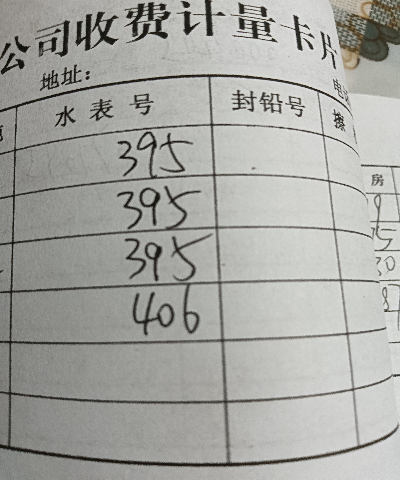 公司收费计量卡片
地址：
水表号 封铅号
房
395
395
395
406